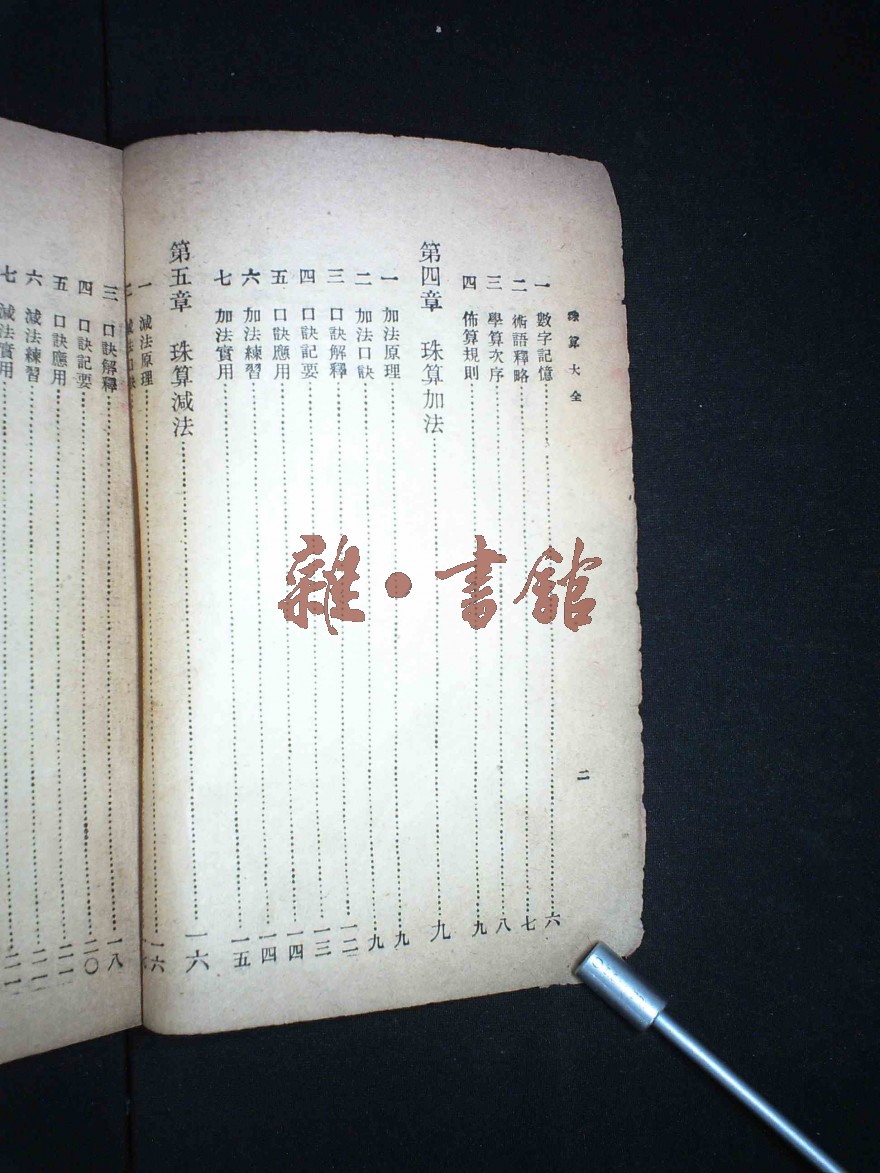 珠算大全
二
一 數字記憶 六
二 術語釋略 七
三 學算次序 八
四 佈算規則 九
第四章 珠算加法 九
一 加法原理 九
二 加法口訣 九
三 口訣解釋 一二
四 口訣記要 一三
五 口訣應用 一四
六 加法練習 一四
七 加法實用 一五
第五章 珠算減法 一六
一 減法原理 一六
二 減法口訣
三 口訣解釋 一八
四 口訣記要 二〇
五 口訣應用
六 減法練習
七 減法實用
雜·書館